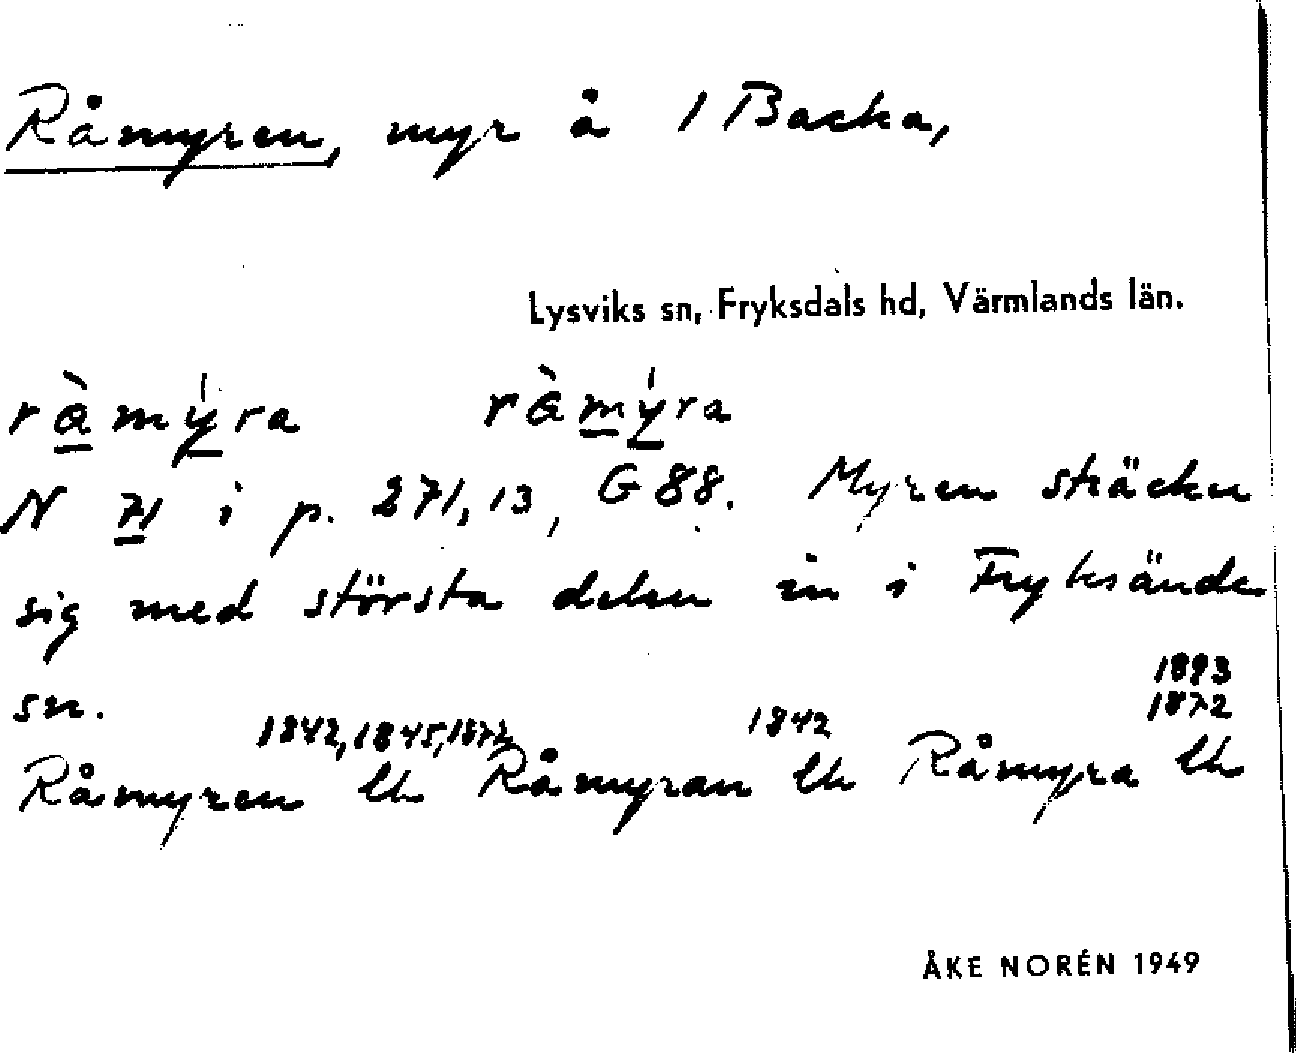 Råmyren, myr å 1 Backa,
Lysviks sn, Fryksdals hd, Värmlands län.
rà̱mý̱ra ràm̱ý̱ra
N 71 i p. 271,13, G 88. Myren sträcker
sig med största delen in i Fryksände
sn.
1893
1842, 1845, 1872 1842 1872
Råmyren lh Råmyran lh Råmyra lh
ÅKE NORÉN 1949